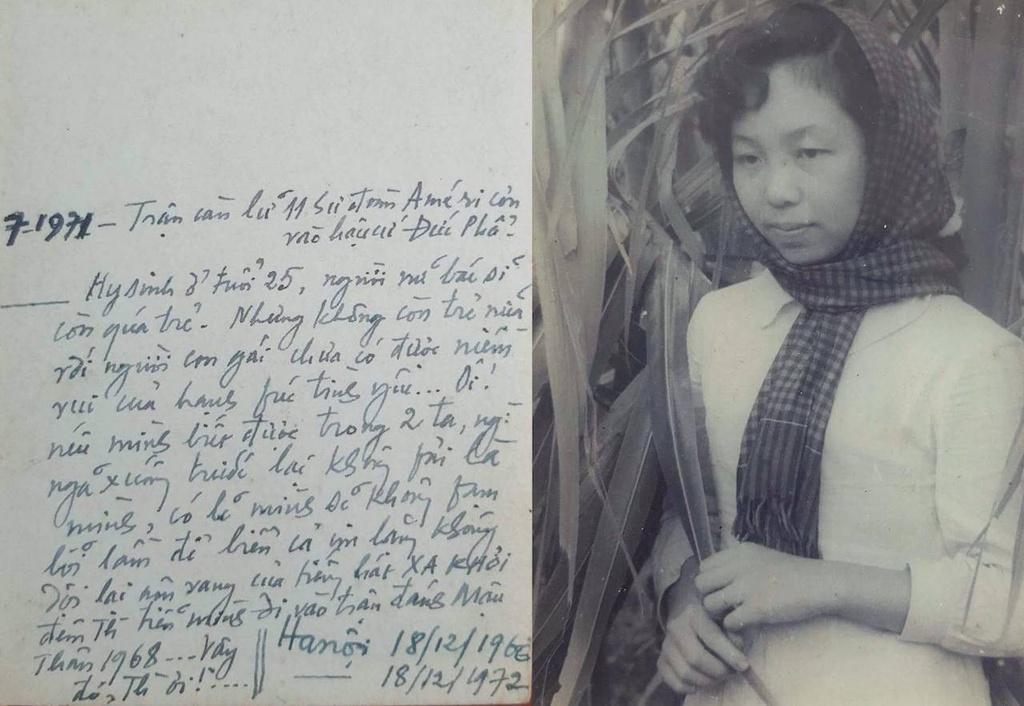 7-1971 - Trận càn lữ 11 Sư đoàn Améri còn
vào hậu cứ Đức Phổ.
Hy sinh ở tuổi 25, người nữ bác sĩ
còn quá trẻ. Nhưng không còn trẻ nữa
với người con gái chưa có được niềm
vui của hạnh fúc tình yêu... Ôi!
nếu mình biết được trong 2 ta, ng
ngã xuống trước lại không fải là
mình, có lẽ mình sẽ không fạm
lỗi lầm để biển cả im lặng không
dội lại âm vang của tiếng hát XA KHƠI
đêm Th tiễn mình đi vào trận đánh Mậu
Thân 1968.... Vậy
đó, Th ơi!....
Hanội 18/12/1966
18/12/1972